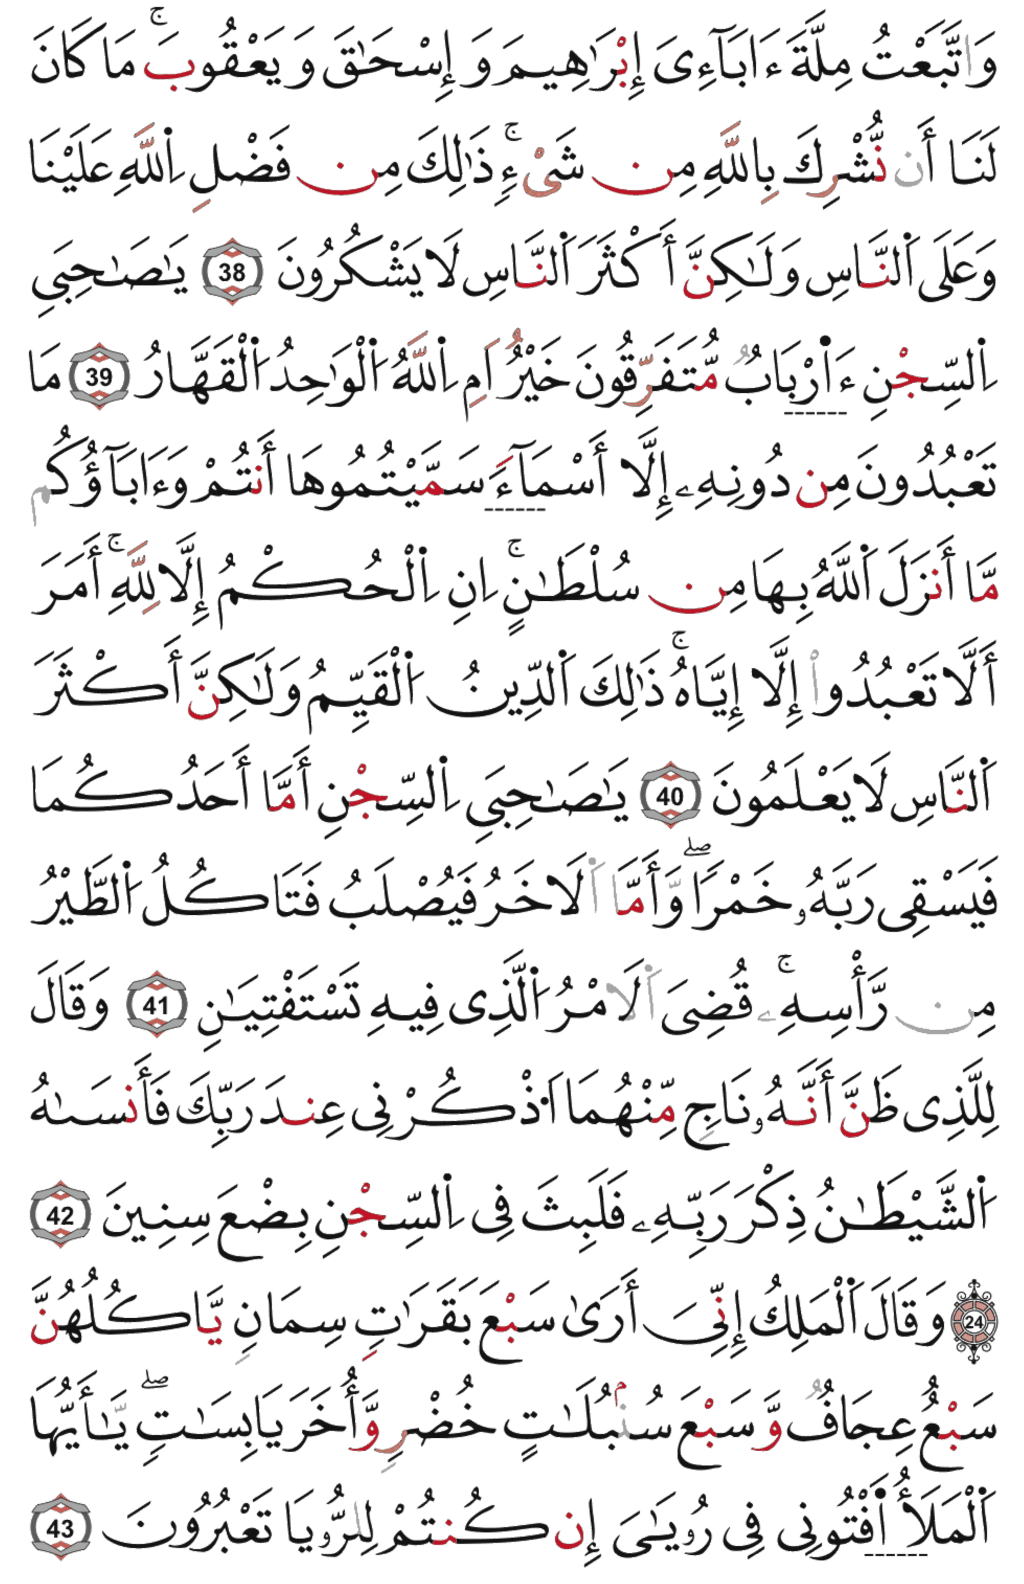 وَاتَّبَعْتُ مِلَّةَ ءَابَآءِىَ إِبْرَٰهِيمَ وَ إِسْحَٰقَ وَ يَعْقُوبَۚ مَا كَانَ
لَنَا أَن نُّشْرِكَ بِاللَّهِ مِن شَىْءٍۚ ذَٰلِكَ مِن فَضْلِ اِ۬للَّهِ عَلَيْنَا
وَعَلَى اَ۬لنَّاسِ وَلَٰكِنَّ أَكْثَرَ اَ۬لنَّاسِ لَا يَشْكُرُونَ 38 يَٰصَٰحِبَيِ
اِ۬لسِّجْنِ ءَا۬رْبَابٌ مُّتَفَرِّقُونَ خَيْرٌ اَمِ اِ۬للَّهُ اَ۬لْوَٰحِدُ اَ۬لْقَهَّارُ 39 مَا
تَعْبُدُونَ مِن دُونِهِۦ إِلَّا أَسْمَآءَ سَمَّيْتُمُوهَا أَنتُمْ وَءَابَآؤُكُم
مَّا أَنزَلَ اَ۬للَّهُ بِهَا مِن سُلْطَٰنٍۚ اِنِ اِ۬لْحُكْمُ إِلَّا لِلَّهِۚ أَمَرَ
أَلَّا تَعْبُدُواْ إِلَّا إِيَّاهُۚ ذَٰلِكَ اَ۬لدِّينُ اَ۬لْقَيِّمُ وَلَٰكِنَّ أَكْثَرَ
اَ۬لنَّاسِ لَا يَعْلَمُونَ 40 يَٰصَٰحِبَيِ اِ۬لسِّجْنِ أَمَّا أَحَدُكُمَا
فَيَسْقِى رَبَّهُۥ خَمْرًاۖ وَأَمَّا اَ۬لَاخَرُ فَيُصْلَبُ فَتَاكُلُ اُ۬لطَّيْرُ
مِن رَّأْسِهِۦۚ قُضِىَ اَ۬لَامْرُ اُ۬لَّذِى فِيهِ تَسْتَفْتِيَٰنِ 41 وَقَالَ
لِلَّذِى ظَنَّ أَنَّهُۥ نَاجٍ مِّنْهُمَا اَ۟ذْكُرْنِى عِندَ رَبِّكَ فَأَنسَىٰهُ
اُ۬لشَّيْطَٰنُ ذِكْرَ رَبِّهِۦ فَلَبِثَ فِى اِ۬لسِّجْنِ بِضْعَ سِنِينَ 42
24 وَقَالَ اَ۬لْمَلِكُ إِنِّىَ أَرَىٰ سَبْعَ بَقَرَٰتٍ سِمَانٍ يَّاكُلُهُنَّ
سَبْعٌ عِجَافٌ وَّسَبْعَ سُنۢبُلَٰتٍ خُضْرٍ وَّأُخَرَ يَابِسَٰتٍۖ يَّٰأَيُّهَا
اَ۬لْمَلَأُ ا۬فْتُونِى فِى رُءْيَٰىَ إِن كُنتُمْ لِلرُّءْيَا تَعْبُرُونَ 43